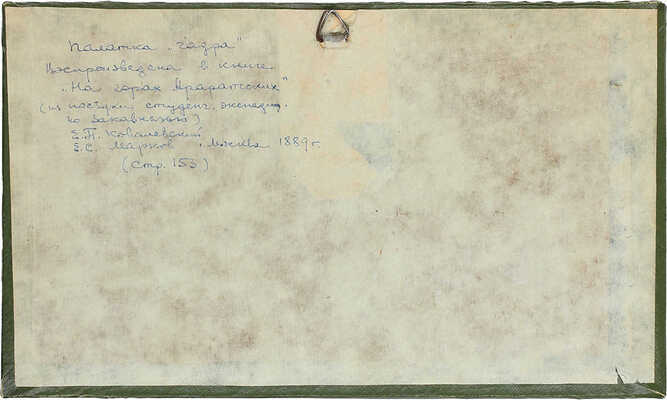 Палатка „Гадра"
Воспроизведена в книге
„На горах Араратских"
(из поездки студенч. экспедиц.
по Закавказью)
Е.П. Ковалевский
Е.С. Марков. Москва 1889 г.
(стр. 153)